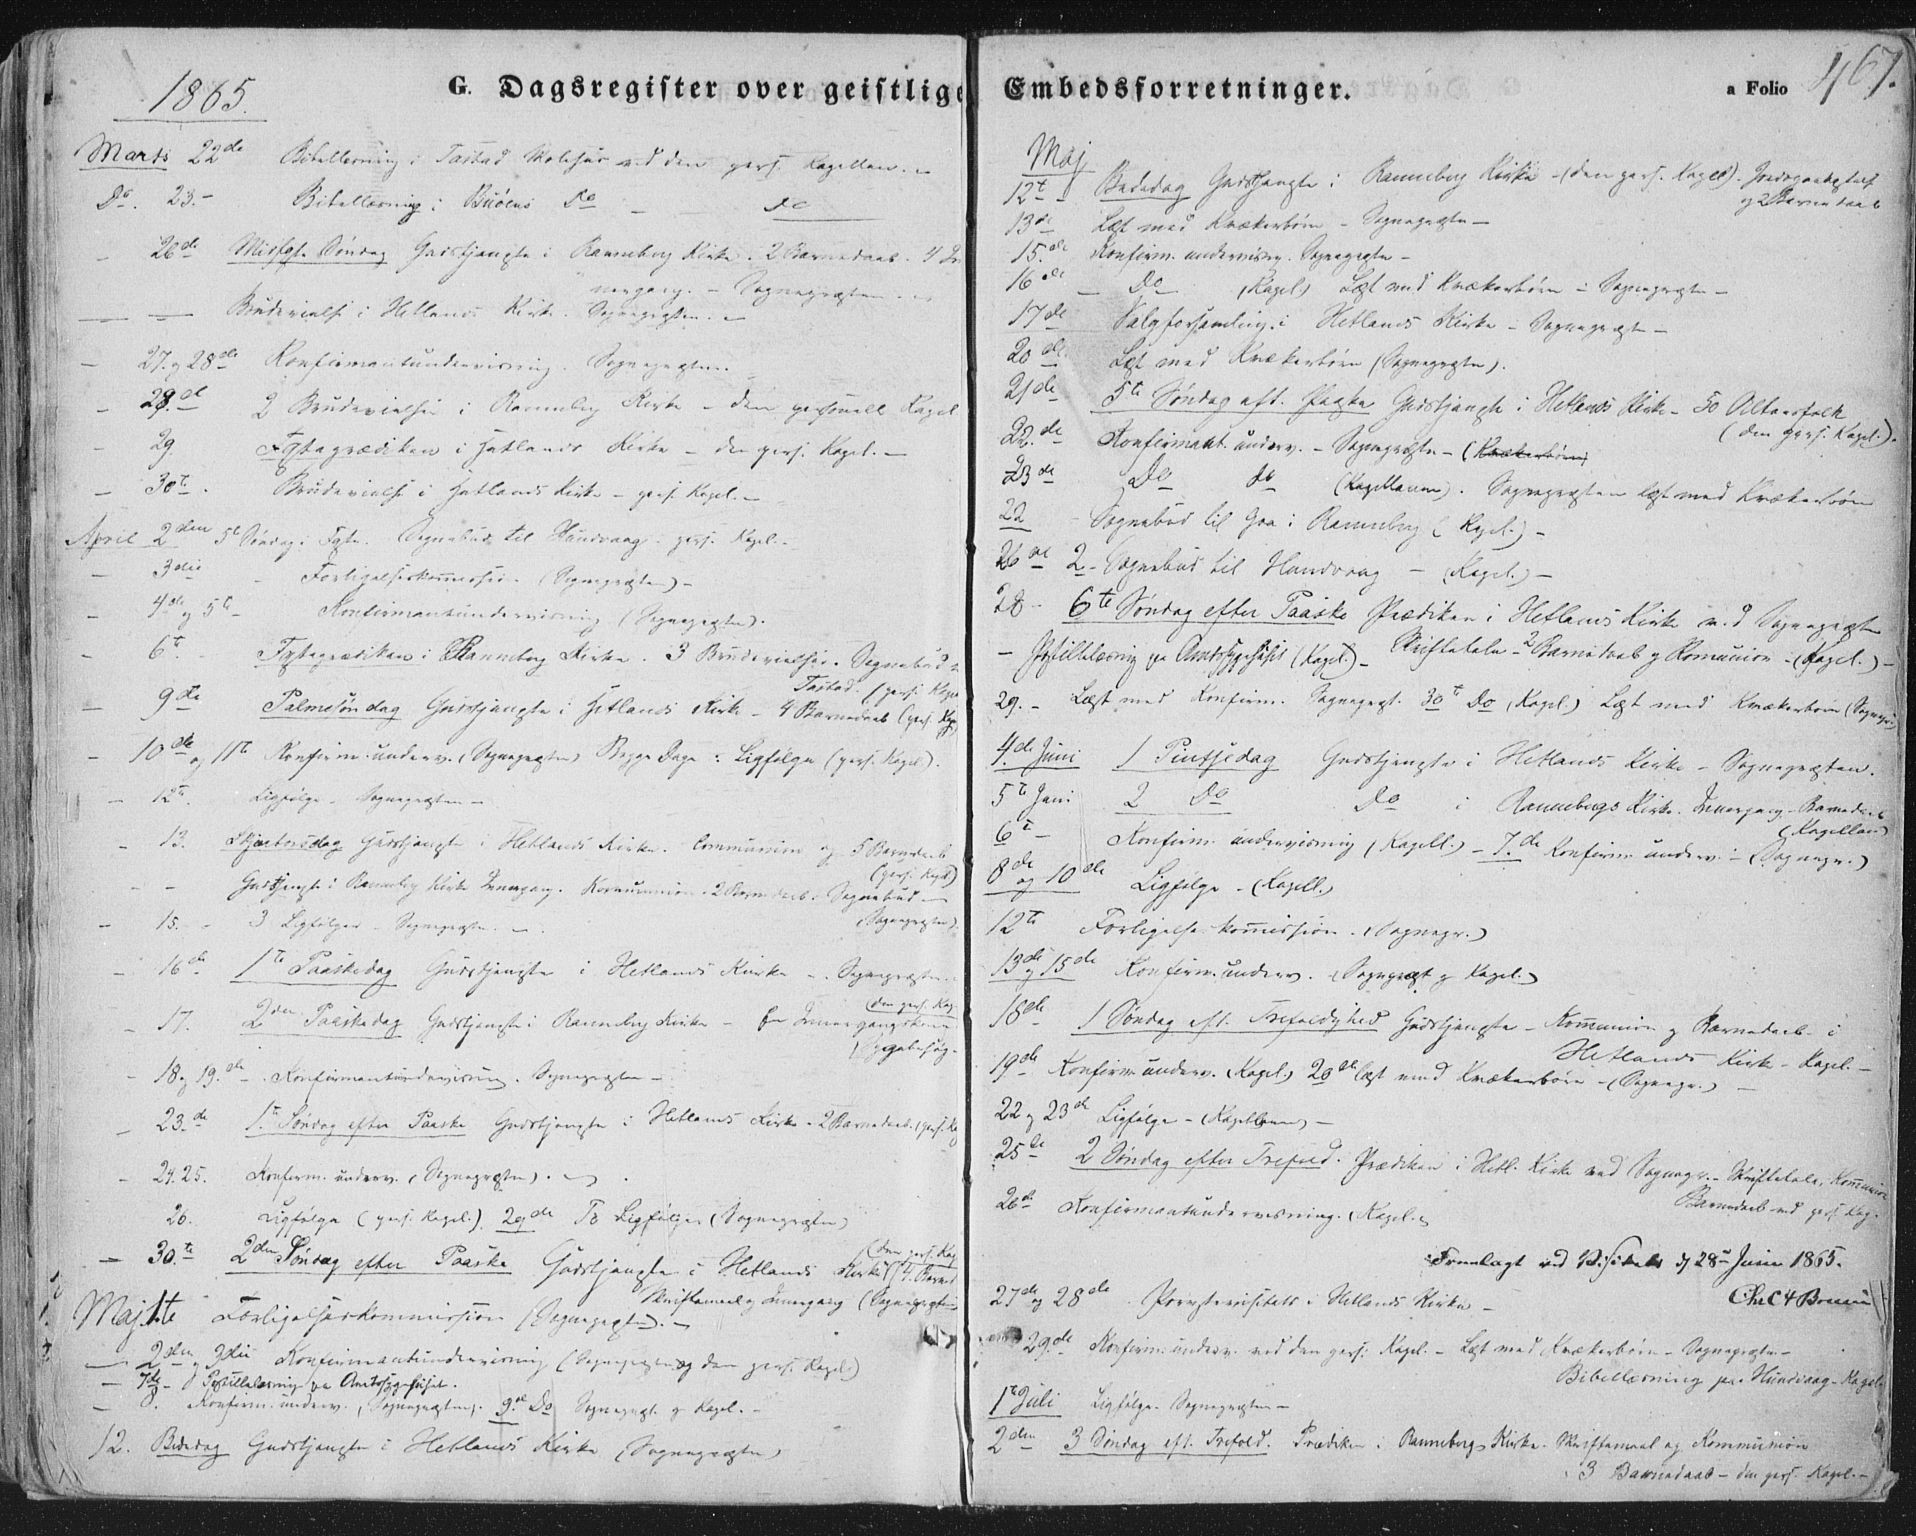 1865.
G. Dagsregister over geistlige
Marts 22de Bibellæsning i Tastad Skolehus ved den pers. Kapellan. –
Do. 23. – Bibellæsning i Buøens Do – Do
– 26de Midfst. Søndag Gudstjeneste i Ranneberg Kirke. 2 Barnedaab. 4 In
nergang. – Sognepræsten. –
Brudevielse i Hetlands Kirke. Sognepræsten. –
– 27. og 28de Konfirmantundervisning. Sognepræsten.
– 29.de 2 Brudevielser i Ranneberg Kirke – den personell Kapel
– 29 Fasteprædiken i Hetlands Kirke – den pers. Kapel. –
– 30te. Brudevielse i Hetlands Kirke – pers. Kapel. –
April 2den 5te Søndag i Faste. Sognebud til Hundvaag. pers. Kapel. –
– 3die – Forligelseskommission. (Sognepræsten) –
– 4de og 5te – Konfirmantundervisning (Sognepræsten).
– 6te. – Fasteprædiken i Ranneberg Kirke. 3 Brudevielser. Sognebud
Tastad. (pers. Kapel
– 9de Palmesøndag Gudstjeneste i Hetlands Kirke – 4 Barnedaab (pers. Kap
– 10de og 11te Konfirm. underv. (Sognepræsten) Begge Dage : Ligfølge (pers. Kapel).
– 12te. Ligfølge – Sognepræsten –
– 13. Skjærtorsdag Gudstjeneste i Hetlands Kirke. Communion og 5 Barnedaab
(pers. Kapel)
– – Gudstjeneste i Ranneberg Kirke Innergang. Kommunion. 2 Barnedaab. Sognebud –
(Sognepræsten)
– 15. – 3 Ligfølger – Sognepræsten. –
– 16de 1te Paaskedag Gudstjeneste i Hetlands Kirke – Sognepræsten.
(den pers. Kap
– 17. 2den Paaskedag Gudstjeneste i Ranneberg Kirke – En Innergangskone
Sygebesøg.
– 18 og 19.de – Konfirmantundervisning. Sognepræsten –
– 23.de 1te Søndag efter Paaske Gudstjeneste i Hetlands Kirke. 2 Barnedaab. (pers. Ka
– 24. 25. Konfirm. underv. (Sognepræsten). –
26. Ligfølge (pers. Kapel.). 29de To Ligfølger (Sognepræsten)
(den pers. Kap
– 30.te 2den Søndag efter Paaske Gudstjeneste i Hetlands Kirke (4. Barned
Skriftemaal og Innergang (Sognepræsten)
Maj 1te Forligelseskommission (Sognepræsten). –
– 2den og 3die Konfirmantundervisning (Sognepræsten og den pers. Kapel)
– 7de – Postillelæsning paa Amtssygehuset.
– 8. Konfirm. underv. (Sognepræsten). 9de Do Sognepræst. og Kapel. –
12. Bededag Gudstjeneste i Hetlands Kirke (Sognepræsten)
Embedsforretninger.
a Folio 467.
Maj
12te Bededag Gudstjeneste i Ranneberg Kirke – (den pers. Kapel).
og 2 Barnedaab
13de Læst med Kvækerbørn – Sognepræsten –
15.de Konfirm. undervisng. Sognepræsten –
16de – Do (Kapel) Læst med Kvækerbørn – Sognepræsten –
17de Valgforsamling i Hetlands Kirke – Sognepræst –
20de. Læst med Kvækerbørn (Sognepræsten).
21de 5te Søndag eft. Paaske Gudstjeneste i Hetlands Kirke – 50 Altersfolk
(den pers. Kapel.).
22.de Konfirmant. underv. – Sognepræsten – (Kvækerbørn)
23de Do do (Kapellanen). Sognepræsten læst med Kvækerbørn
22 – Sognebud til Goa i Ranneberg (Kapel.) –
26de 2 – Sognebud til Hundvaag – (Kapel.) –
28 – 6te Søndag efter Paaske Prædiken i Hetlands Kirke ved Sognepræst
– Postillelæsning paa Amtssygehuset (Kapel.) – Skriftetale – 2 Barnedaab og Komunion – (Kapel.) –
29. – Læst med Konfirm. Sognepræst. 30te Do (Kapel.) Læst med Kvækerbørn (Sognepr.)
4de Juni 1 Pintsedag Gudstjeneste i Hetlands Kirke – Sognepræsten.
5te Juni 2 Do Do i Rannebergs Kirke. Innergang – Barnedaab
(Kapellan)
6te – Konfirm. undervisning (Kapell.) – 7.de Konfirm. underv. – (Sognepr.)
8de og 10de Ligfølge – (Kapell.)
12te Forligelseskomission. (Sognepr.)
13de og 15de Konfirm. underv. (Sognepræst og Kapel.)
18de 1 Søndag eft. Trefoldighed Gudstjeneste – Kommunion og Barnedaab i
Hetlands Kirke – Kapel. –
19de Konfirm. underv. (Kapel.) 20de læst med Kvækerbørn – (Sognepr.) –
22 og 23de Ligfølge – (Kapellanen) –
25de 2 Søndag efter Trefold. Prædiken i Hetl. Kirke ved Sognepr. – Skriftetale, Kommunion
Barnedaab ved pers. Kap.
26de Konfirmantundervisning. (Kapel.)
Fremlagt ved Visitats d 28de Juni 1865.
27de og 28de Provstevisitats i Hetlands Kirke –
29.de Konfirm. underv. ved den pers. Kapel. – Læst med Kvækerbørn – Sognepræsten –
Bibellæsning paa Hundvaag – Kapel.
1te Juli Ligfølge. Sognepræsten –
2den 3 Søndag eft. Trefold. Prædiken i Rannebergs Kirke. Skriftemaal og Kommunion
3 Barnedaab – den pers. Kapel. –